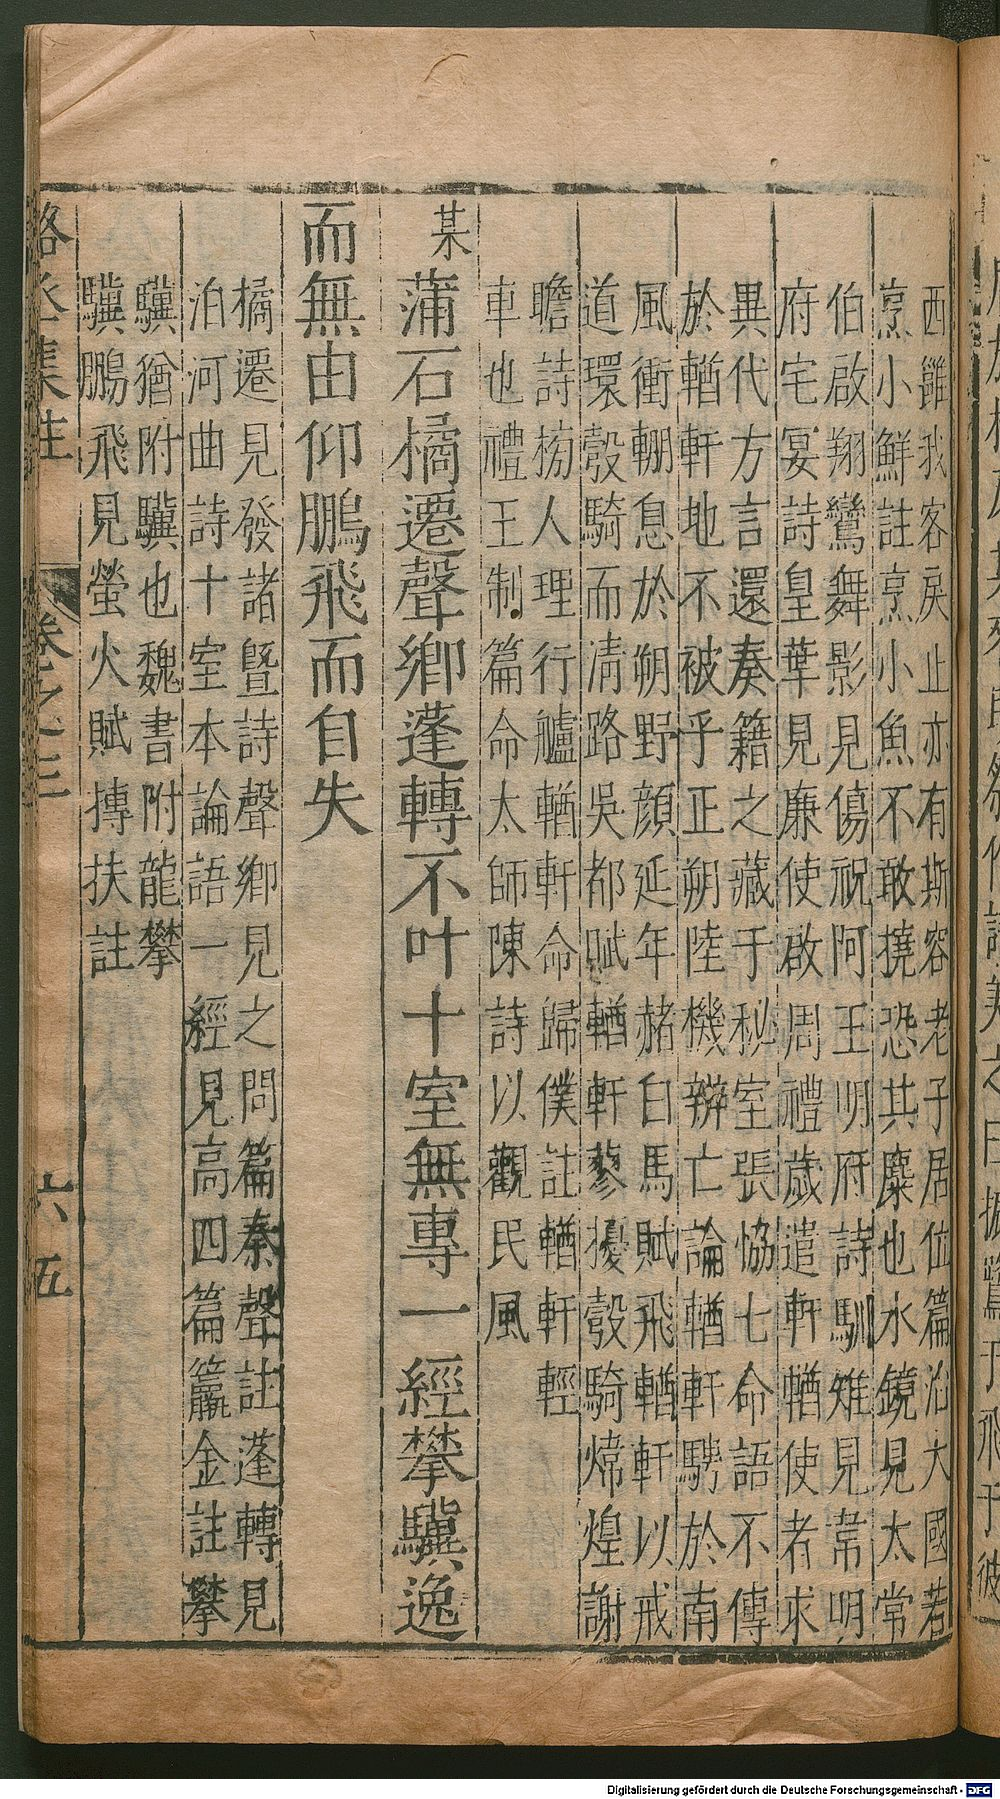 西雝我客戾止亦有斯容老子居位篇治大國若
烹小鮮註烹小魚不敢撓恐其麋也水鏡見太常
伯啟翔鸞舞影見傷祝阿王明府詩馴雉見常明
府宅宴詩皇華見廉使啟周禮歲遣軒輶使者求
異代方言還奏籍之藏于秘室張協七命語不傳
於輶軒地不被乎正朔陸機辨亡論輶軒騁於南
風衝輣息於朔野顏延年赭白馬賦飛輶軒以戒
道環彀騎而清路吳都賦輶軒蓼擾彀騎煒煌謝
瞻詩榜人理行艫輶軒命歸僕註輶軒輕
車也禮王制篇命太師陳詩以觀民風
某蒲石橘遷聲鄉蓬轉不叶十室無專一經攀驥逸
而無由仰鵬飛而自失
橘遷見發諸曁詩聲鄉見之問篇秦聲註蓬轉見
泊河曲詩十室本論語一經見高四篇籯金註攀
驥猶附驥也魏書附龍攀
驥鵬飛見螢火賦摶扶註
卷之三
六五
Digitalisierung gefördert durch die Deutsche Forschungsgemeinschaft - DFG